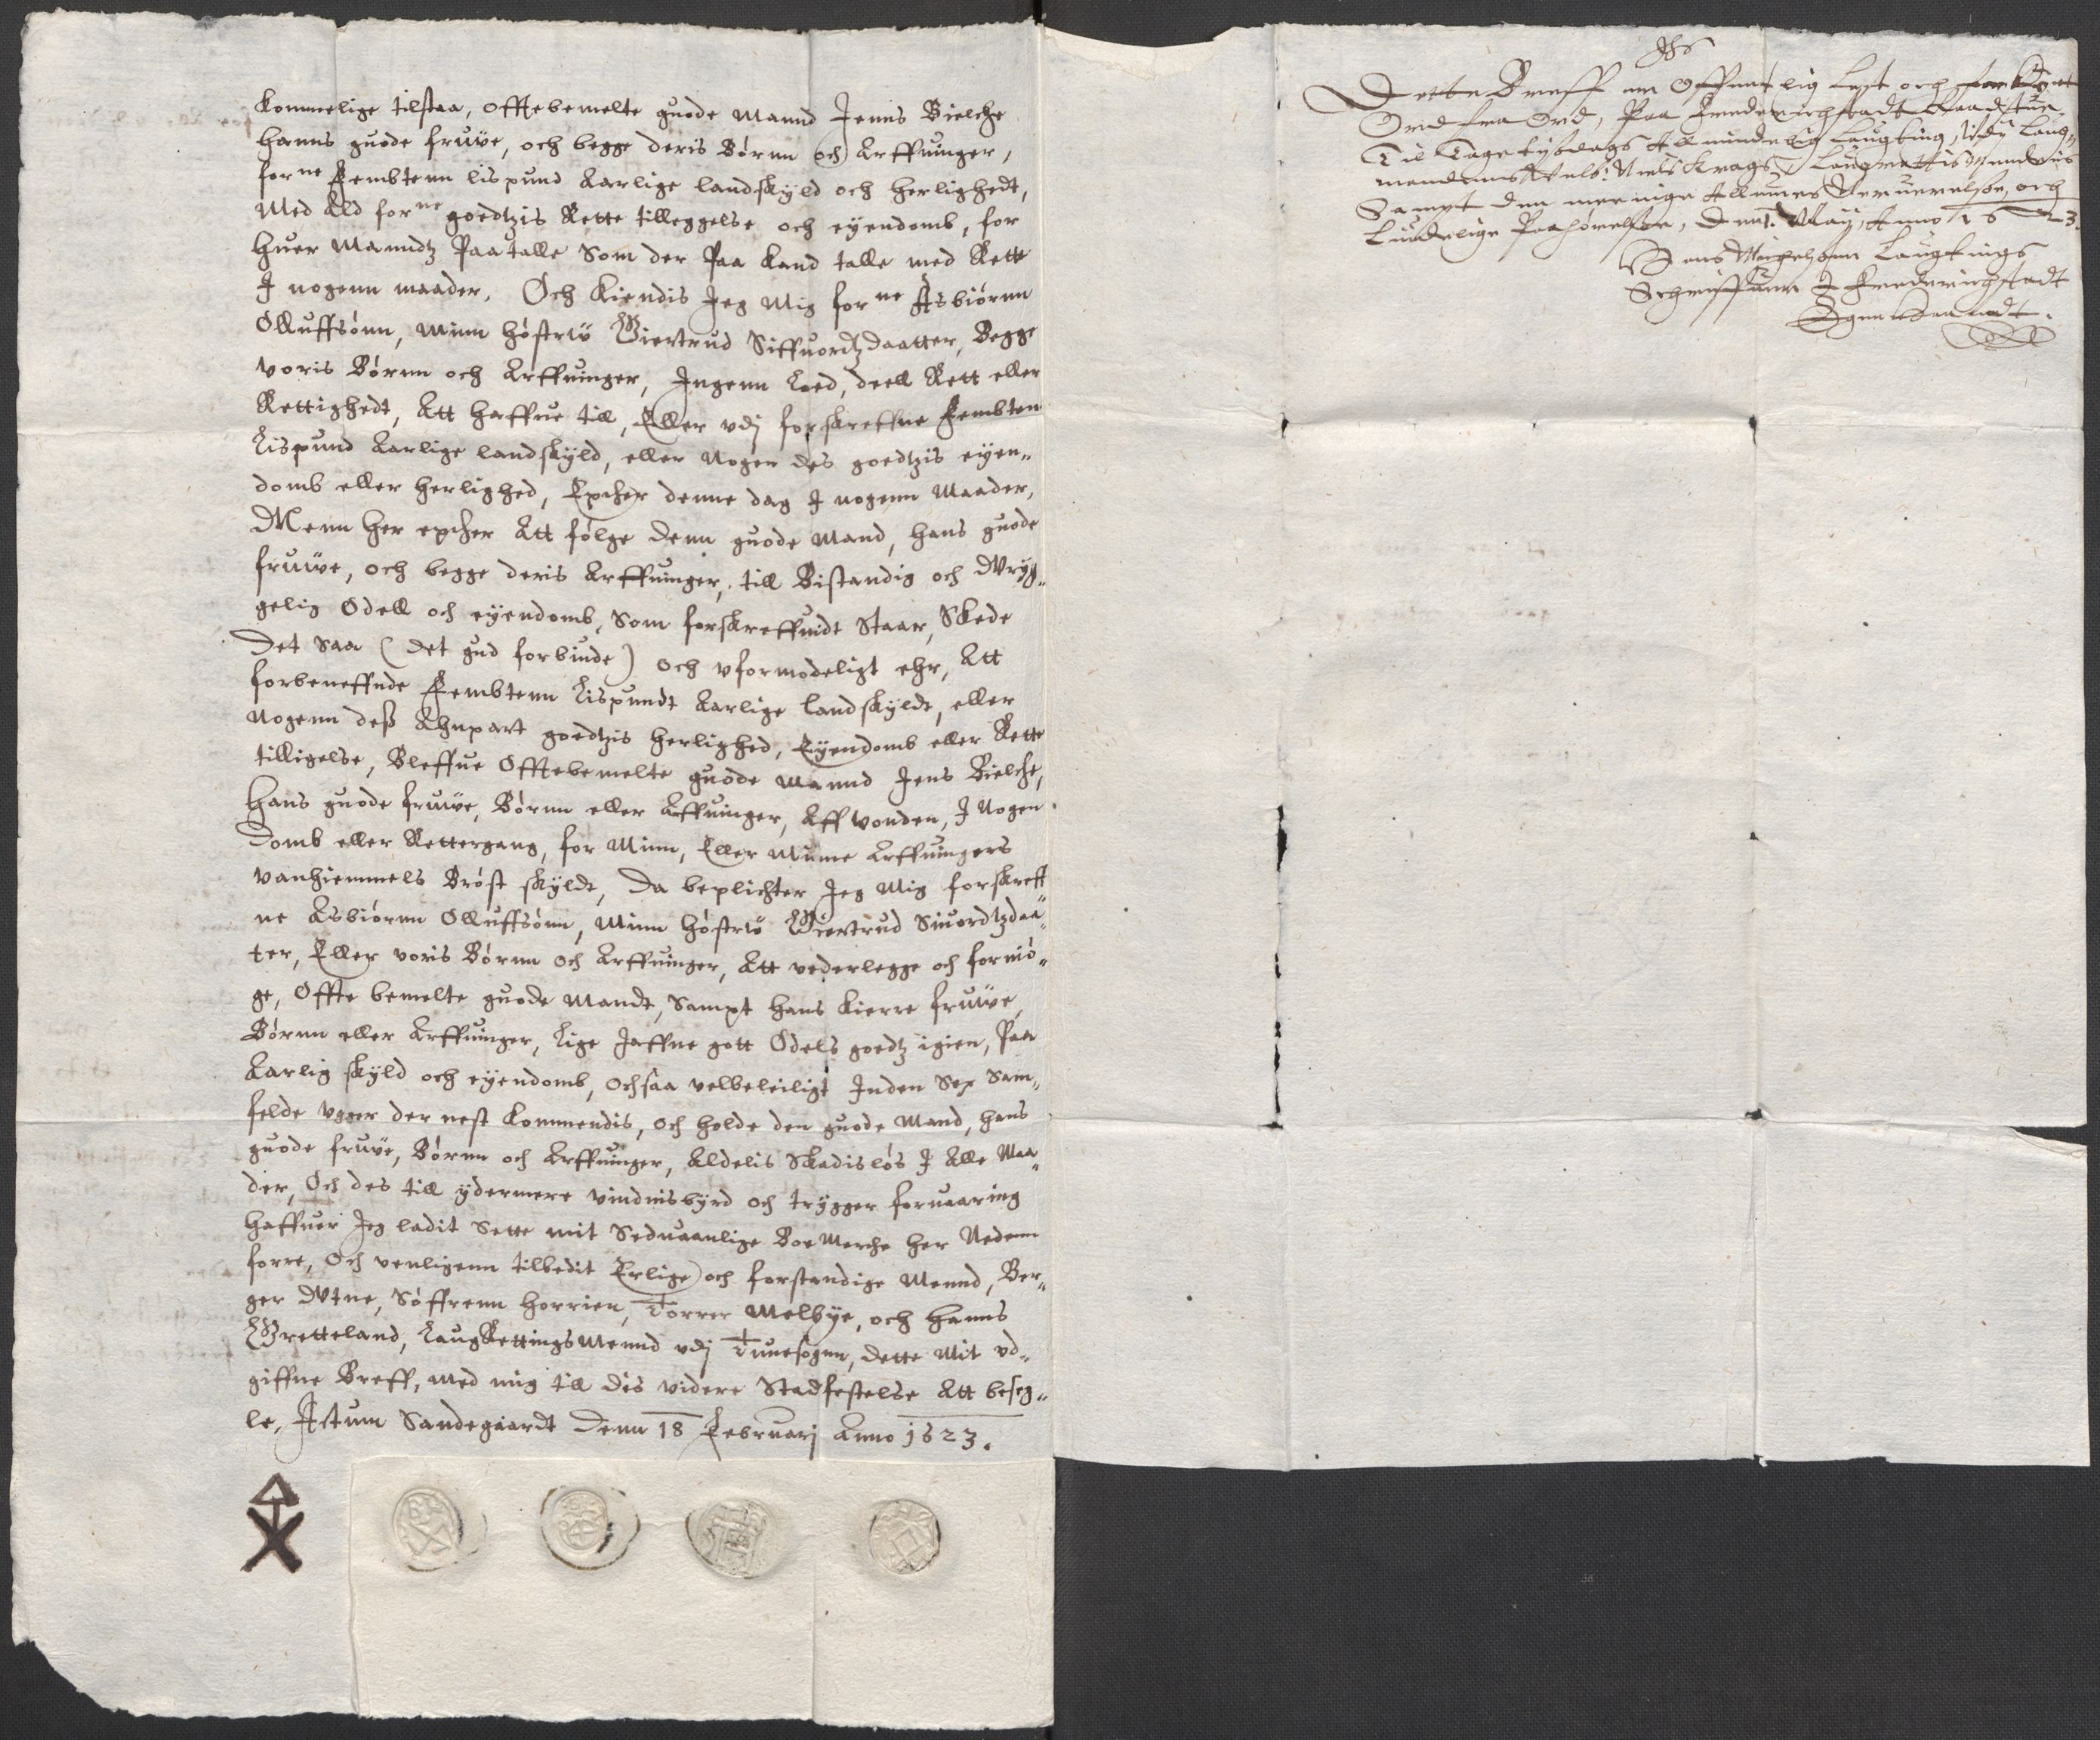 kommelige tilstaa, Offtebemelte guode Mannd Jenns Bielche
hanns guode fruwe, och begge deris Börnn och Arffuinger,
forne Fembtenn lispund Aarlige landskyld och herlighedt,
Med Ald forne goedtzis Rette tilleggelse och eyendomb, for
huer Manndtz Paatalle Som der Paa kand talle med Rette
I nogenn maader, Och Kiendis Jeg Mig forne Asbiörnn
Olluffsönn, Minn höstrw Giertrud Siffuordtzdaatter, Begge
voris Börnn och Arffuinger, Ingenn Lod, deell Rett eller
Rettighedt, Att haffue till, Eller vdj forskreffne Fembten
Lispund Aarlige landskyld, eller Nogen des goedtzis eyen„
domb eller herlighed, Epther denne dag I nogenn Maader,
Menn her epther Att fölge denn guode Mand, hans guode
fruwe, och begge deris Arffuinger, till Bistandig och Wryg„
gelig Odell och eyendomb, Som forskreffuidt Staar, Skede
Det Saa (det gud forbiude) och vformodeligt ehr, Att
forbeneffnde Fembtenn Lispundt Aarlige landskyldt, eller
Nogenn dess Ahnpart goedtzis herlighed, Eyendomb eller Rette
tilligelse, Bleffue Offtebemelte guode Mannd Jens Bielche,
Hans guode fruwe, Börnn eller Arffuinger, Aff vonden, I Nogen
Domb eller Rettergang, for Minn, Eller Minne Arffuingers
vanhiemmels Bröst skyldt, Da beplichter Jeg Mig forskreff„
ne Asbiörnn Olluffsönn, Minn höstrw Giertrud Siuordtzdaa„
ter, Eller voris Börnn och Arffuinger, Att vederlegge och fornö„
ge, Offte bemelte guode Mandt, Sampt hans kierre fruwe,
Börnn eller Arffuinger, Lige Jaffne gott Odels goedtz igien, Paa
Aarlig skyld och eyendomb, och saa velbeleiligt Inden Sex Sam„
felde vger der nest kommendis, och holde den guode Mand, hans
guode fruwe, Börnn och Arffuinger, Aldelis Skadislös I Alle Maa„
der, Och des till ydermere vindnisbyrd och trygger foruaaring
haffuer Jeg ladit Sette mit Seduaanlige Boe Merche her Nedenn
forre, Och venligenn tilbedit Erlige och forstandige Mennd, Ber„
ger Wtne, Söffrenn Horrien, Torrer Melbye, och Hanns
Gretteland, LaugRettings Mennd vdj Tunesogen, dette Mit vd„
giffne Breff, med mig till dis videre Stadfestelse Att beseg„
le, Actum Sandegaardt Denn 18 Februarj Anno 1623.
Dette Breff er Offentlig Lest och forkyndt
Ord fra Ord, Paa Frederichstadt Raadstue
Til Almindelig Laugting, Laug„
mandens Niels Kragh Laugrettis
Sampt den menige Almues och
Lundelige Paahörelse, Den May, Anno 1623.
Laugtings
Schriffuer I Frederichstadt
Egen Haandt.